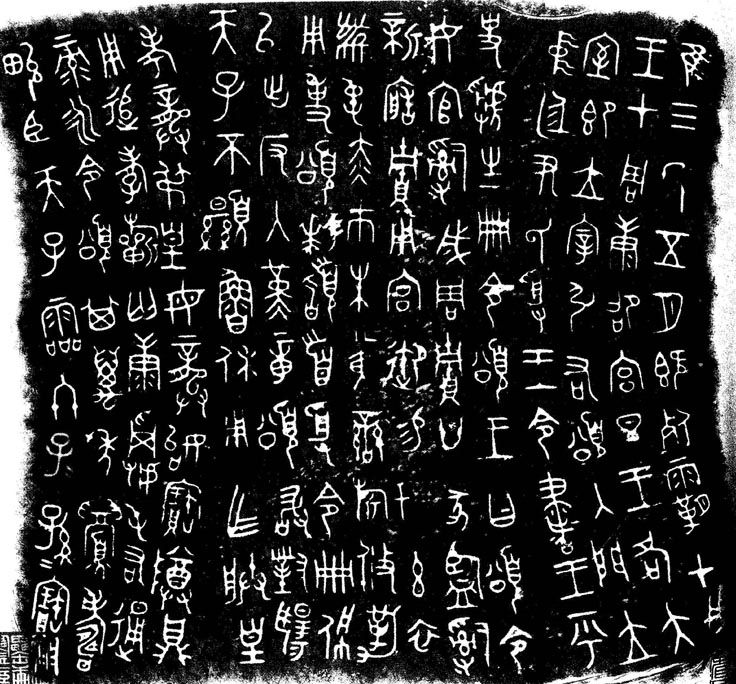 隹三年五月既死霸甲戌
王才周康卲宮旦王各大
室即立宰引右頌入門立
中廷尹氏受王令書王乎
史虢生冊令頌王曰頌令
女官𤔲成周貯廿家監𤔲
新造貯用宮御易女玄衣
黹屯赤巿朱黃鑾旂攸勒
用事頌拜𩒨首受令冊佩
以出反入堇章頌敢對揚
天子不顯魯休用乍朕皇
考龏弔皇母龏始寶尊鼎
用追孝祈匄康𩛥屯右通
彔永令頌其萬年眉壽
畯臣天子霝冬子孫=寶用